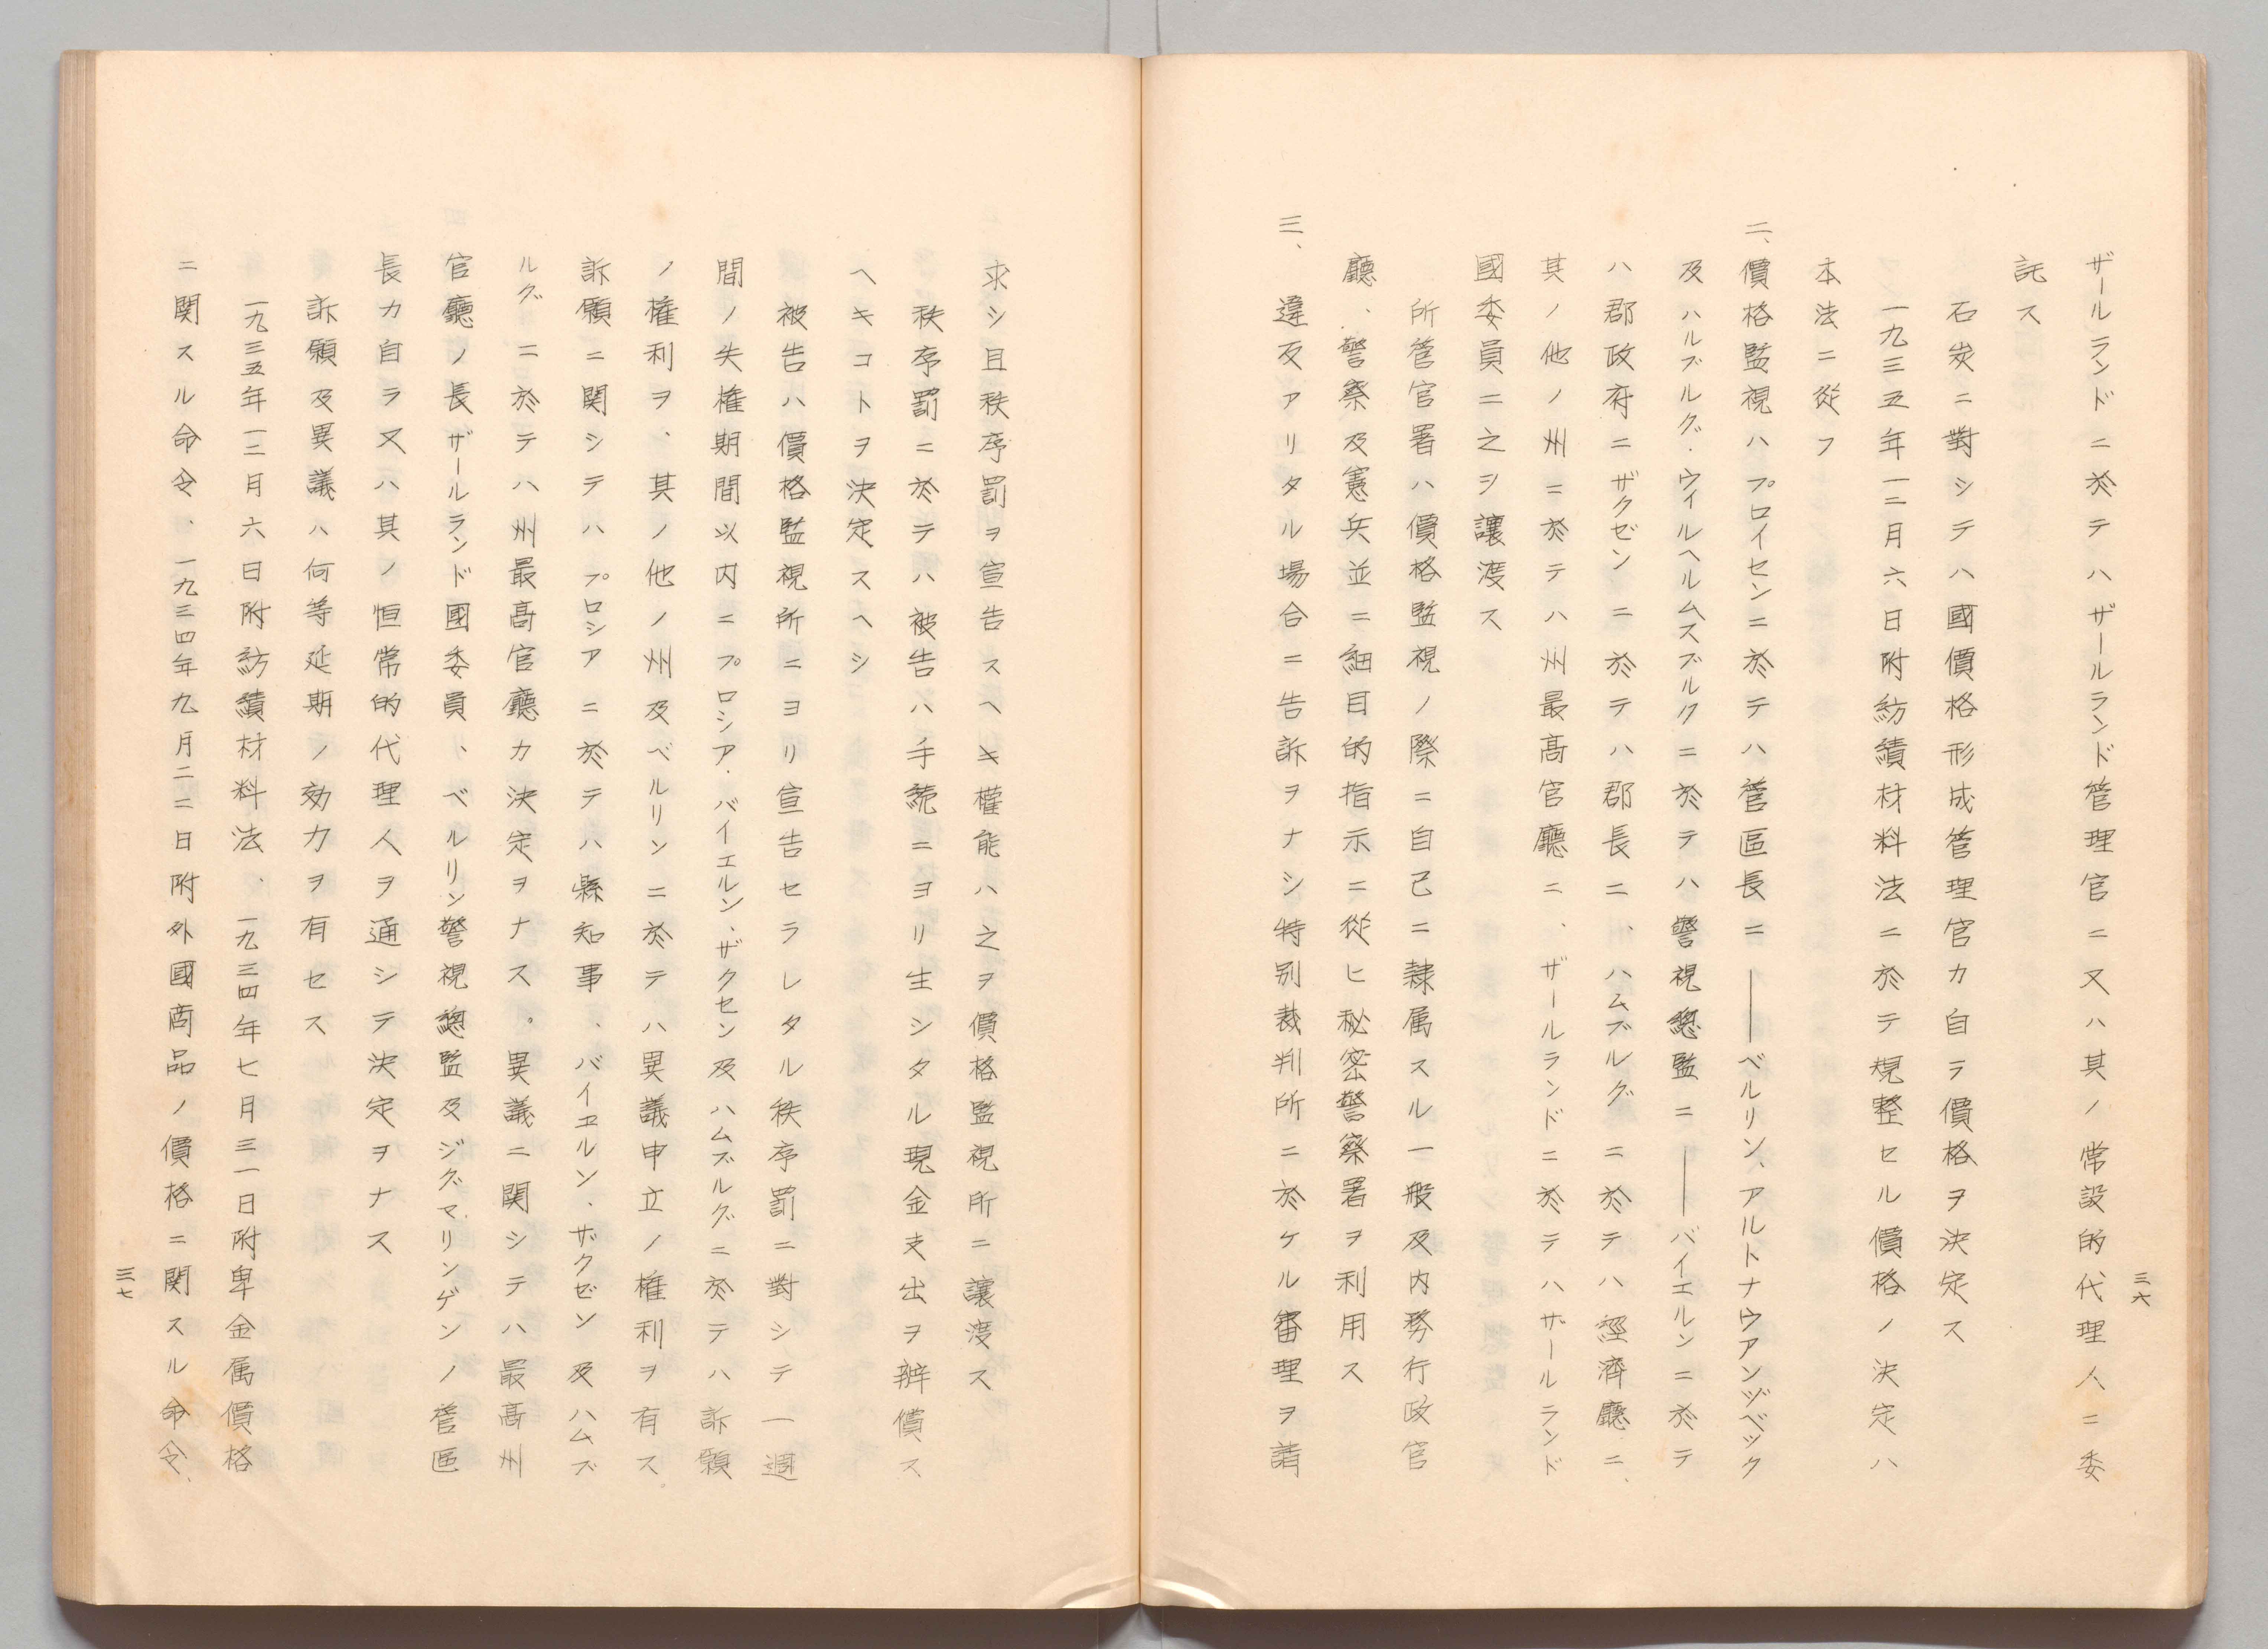 三六
ザールランドニ於テハザールランド管理官ニ又ハ其ノ常設的代理人ニ委
託ス
石炭ニ對シテハ國價格形成管理官カ自ラ價格ヲ決定ス
一九三五年一二月六日附紡績材料法ニ於テ規整セル價格ノ決定ハ
本法ニ從フ
二、價格監視ハプロイセンニ於テハ管區長ニ――ベルリン、アルトナウアンヅベック
及ハルブルグ・ウイルヘルムスブルクニ於テハ警視總監ニ――バイエルンニ於テ
ハ郡政府ニザクゼンニ於テハ郡長ニ、ハムブルグニ於テハ經濟廳ニ、
其ノ他ノ州ニ於テハ州最高官廳ニ、ザールランドニ於テハザールランド
國委員ニ之ヲ讓渡ス
所管官署ハ價格監視ノ際ニ自己ニ隷属スル一般及内務行政官
廳、警察及憲兵並ニ細目的指示ニ從ヒ秘密警察署ヲ利用ス
三、違反アリタル場合ニ告訴ヲナシ特別裁判所ニ於ケル審理ヲ請
求シ且秩序罰ヲ宣告スヘキ權能ハ之ヲ價格監視所ニ讓渡ス
秩序罰ニ於テハ被告ハ手続ニヨリ生シタル現金支出ヲ辨償ス
ヘキコトヲ決定スヘシ
被告ハ價格監視所ニヨリ宣告セラレタル秩序罰ニ對シテ一週
間ノ失権期間以内ニプロシア・バイエルン、ザクセン及ハムブルグニ於テハ訴願
ノ権利ヲ、其ノ他ノ州及ベルリンニ於テハ異議申立ノ権利ヲ有ス。
訴願ニ関シテハプロシアニ於テハ縣知事、バイエルン、ザクゼン及ハムブ
ルグニ於テハ州最高官廳カ決定ヲナス。異議ニ関シテハ最高州
官廳ノ長ザールランド國委員、ベルリン警視總監及ジグマリンゲンノ管區
長カ自ラ又ハ其ノ恒常的代理人ヲ通シテ決定ヲナス
訴願及異議ハ何等延期ノ効力ヲ有セス
一九三五年一二月六日附紡績材料法、一九三四年七月三一日附卑金属價格
ニ関スル命令、一九三四年九月二二日附外國商品ノ價格ニ関スル命令、
三七